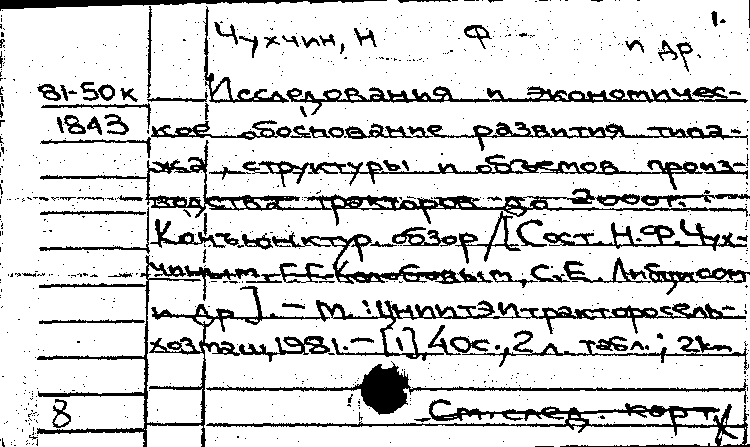 1.
Чухчин, Н Ф и др.
81-50к Исследования и экономичес-
1843 кое обоснование развития типа-
жа, структуры и объемов произ-
водства тракторов до 2000г. :
Конъюнктур. обзор / [Сост. Н.Ф. Чух-
чиным, Г.Г. Колобовым, С.Е. Либцисом
и др]. - М. : ЦНИИТЭИтракторосель-
хозмаш, 1981. - [1], 40с., 2л. табл.; 2km
8 См. след. карт.